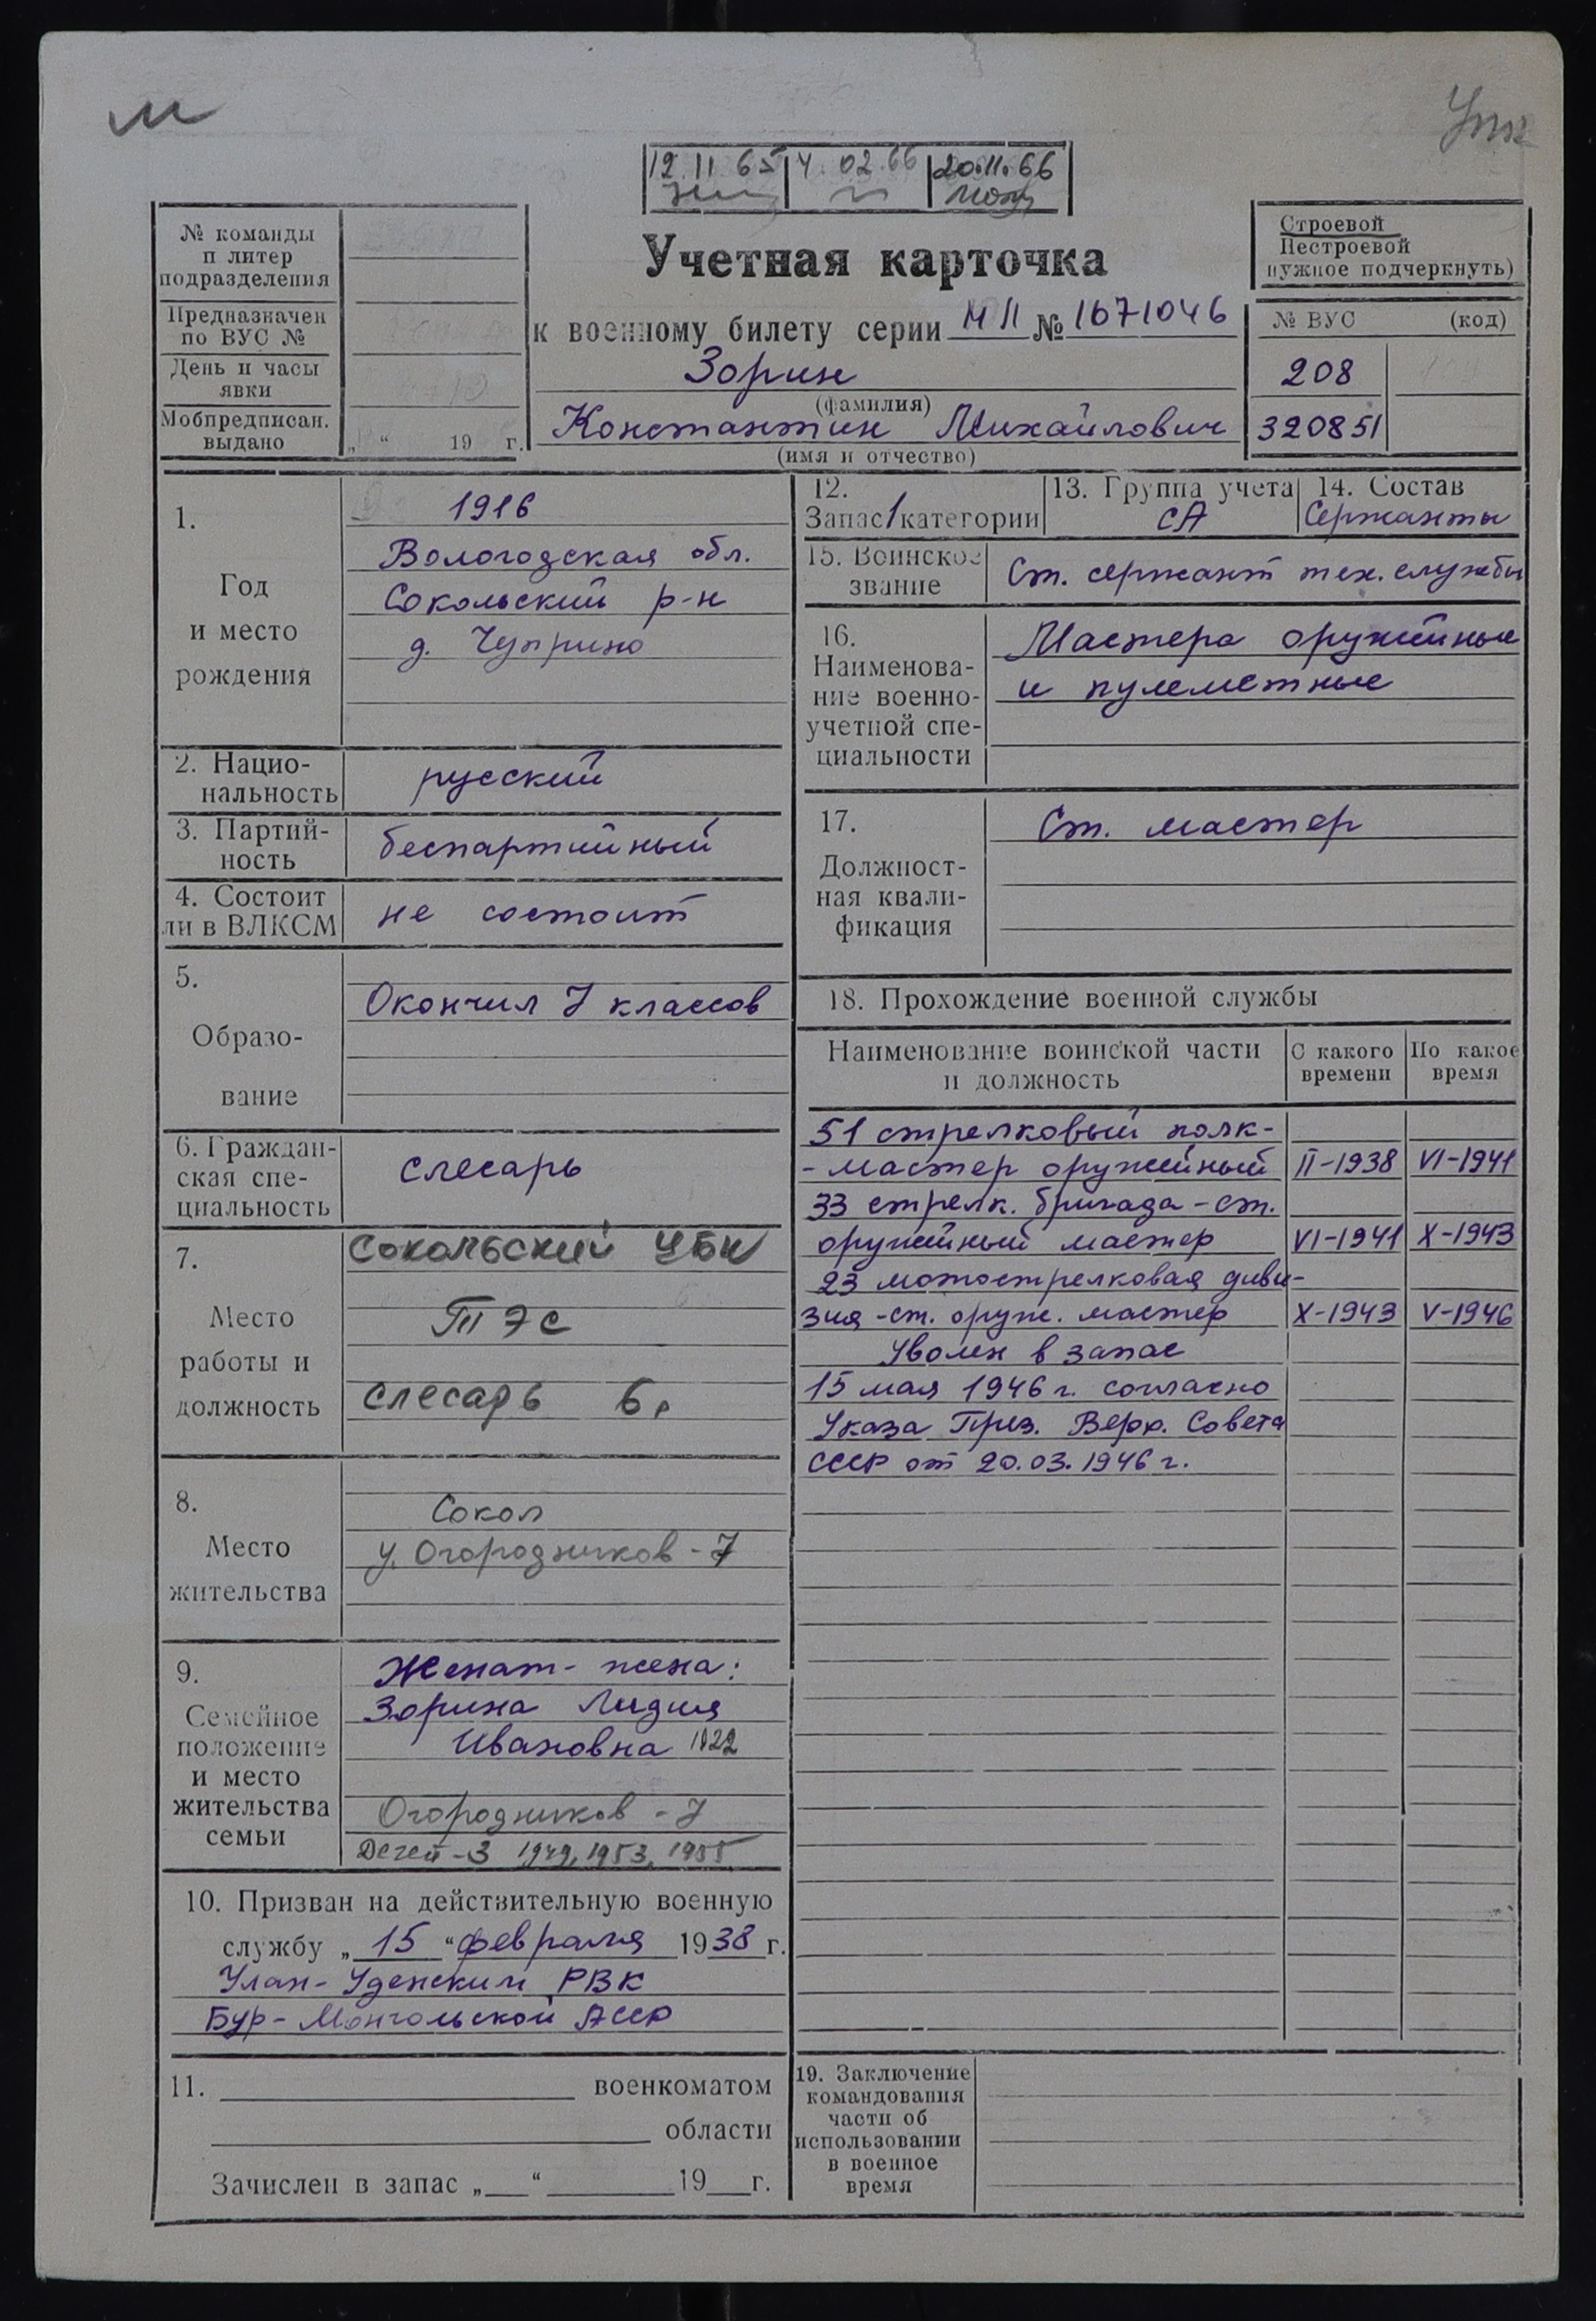 м
12.11.65 4.02.66 20.11.66
№ команды
п литер
подразделения
Предназначен
по ВУС №
День и часы
явки
Мобпредписан.
выдано
„ “ 19 г.
Учетная карточка
к военному билету серии МП № 1671046
Зорин
(фамилия)
Константин Михайлович
(имя и отчество)
Строевой
Нестроевой
нужное подчеркнуть)
№ ВУС (код)
208
320851
1.
Год
и место
рождения
1916
Вологодская обл.
Сокольский р-н
д. Чуприно
2. Нацио-
нальность
русский
3. Партий-
ность
беспартийный
4. Состоит
ли в ВЛКСМ
не состоит
5.
Образо-
вание
Окончил 7 классов
6. Граждан-
ская спе-
циальность
слесарь
7.
Место
работы и
должность
Сокольский ЦБК
ТЭС
слесарь 6р
8.
Место
жительства
Сокол
у. Огородников - 7
9.
Семейное
положение
и место
жительства
семьи
Женат - жена:
Зорина Лидия
Ивановна 1922
Огородников - 7
Детей - 3 1949, 1953, 1955
10. Призван на действительную военную
службу „ 15 “ февраля 1938 г.
Улан-Уденским РВК
Бур-Монгольской АССР
11. военкоматом
области
Зачислен в запас „ “ 19 г.
12.
Запас 1 категории
13. Группа учета
СА
14. Состав
Сержанты
15. Воинское
звание
Ст. сержант тех. службы
16.
Наименова-
ние военно-
учетной спе-
циальности
Мастера оружейные
и пулеметные
17.
Должност-
ная квали-
фикация
Ст. мастер
18. Прохождение военной службы
Наименование воинской части
и должность
С какого
времени
По какое
время
51 стрелковый полк-
- мастер оружейный II-1938 VI-1941
33 стрелк. бригада - ст.
оружейный мастер VI-1941 X-1943
23 мотострелковая диви-
зия - ст. оруж. мастер X-1943 V-1946
Уволен в запас
15 мая 1946 г. согласно
Указа През. Верх. Совета
СССР от 20.03.1946 г.
19. Заключение
командования
части об
использовании
в военное
время